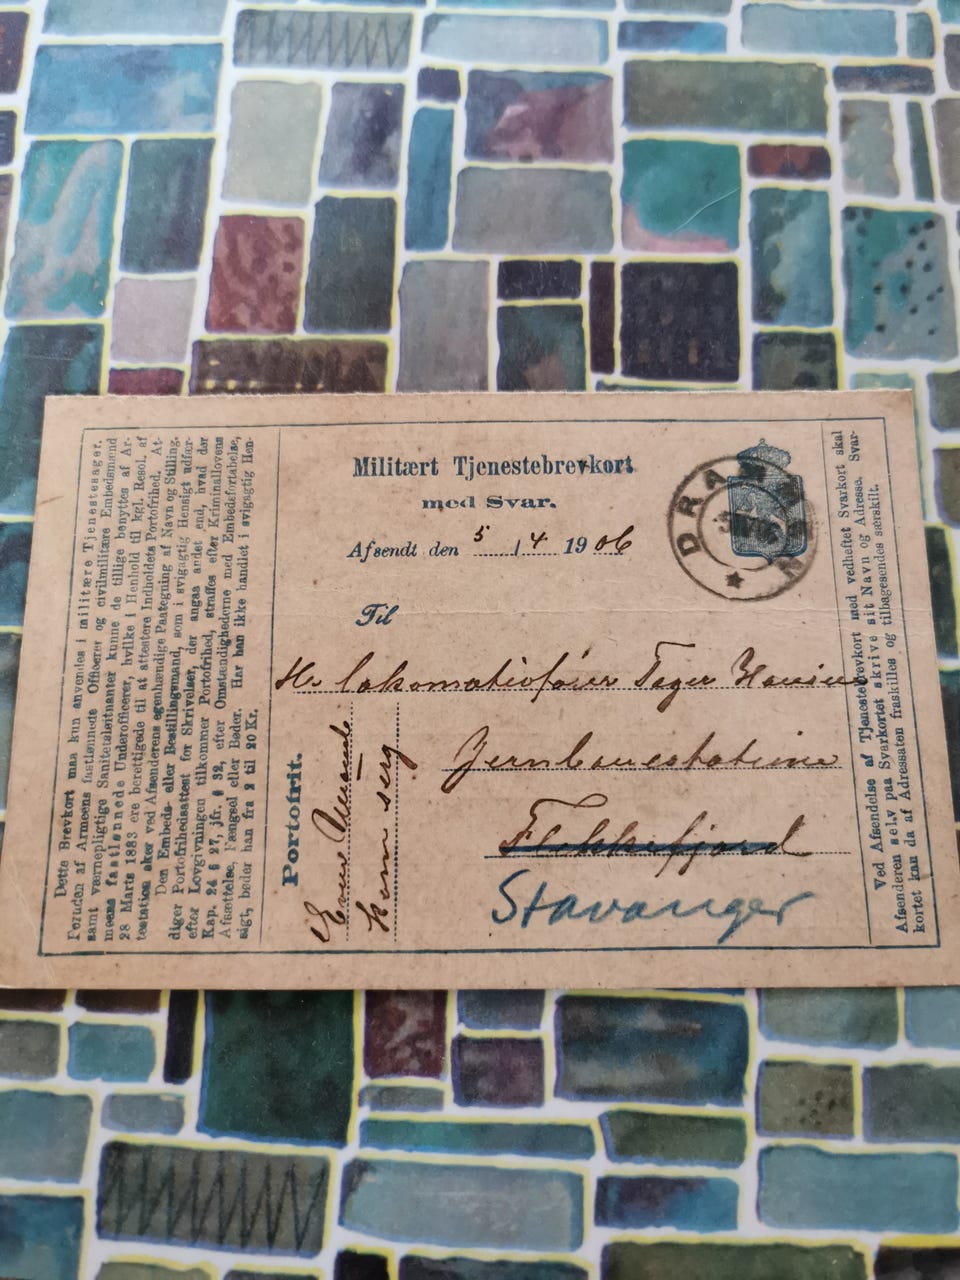 Dette Brevkort maa kun anvendes i militære Tjenestesager.
Foruden af Armeens fastlønnede Officerer og civilmilitære Embedsmænd
samt værnepligtige Sanitetsløitnanter kunne de tillige benyttes af Ar-
meens fastlønnede Underofficerer, hvilke i Henhold til kgl. Resol. af
28 Marts 1883 ere berettigede til at attestere Indholdets Portofrihed. At-
testation sker ved Afsenderens egenhændige Paategning af Navn og Stilling.
Den Embeds- eller Bestillingsmand, som i svigagtig Hensigt udfær-
diger Portofrihedsattest for Skrivelser, der angaa andet end, hvad der
efter Lovgivningen tilkommer Portofrihed, straffes efter Kriminallovens
Kap. 24 § 27, jfr. § 32, efter Omstændighederne med Embedsfortabelse,
Afsættelse, Fængsel eller Bøder. Har han ikke handlet i svigagtig Hen-
sigt, bøder han fra 2 til 20 Kr.
Militært Tjenestebrevkort
med Svar.
Afsendt den 5 / 4 1906
DRAMMEN
Til
Hr. lokomotivfører Teger Hansen
Jernbanestationen
Flekkefjord
Stavanger
Portofrit.
kom serg
Ved Afsendelse af Tjenestebrevkort med vedheftet Svarkort skal
Afsenderen selv paa Svarkortet skrive sit Navn og Adresse. Svar-
kortet kan da af Adressaten fraskilles og tilbagesendes særskilt.